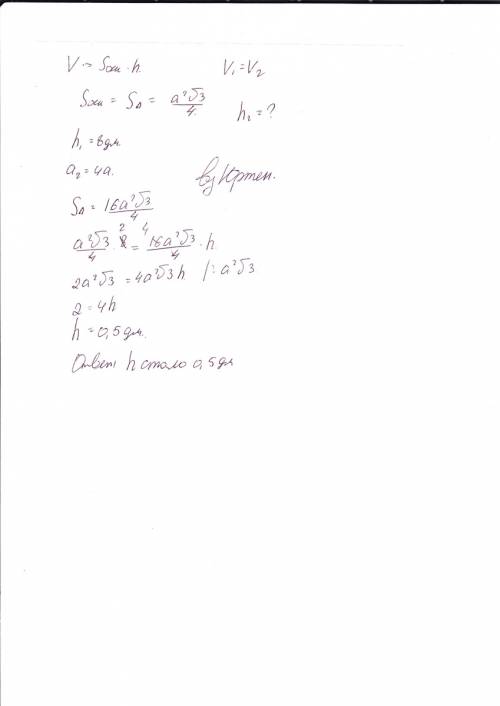 V = Sосн · h.
V₁ = V₂
Sосн = S△ = a²√3/4
h₂ = ?
h₁ = 8дм.
a₂ = 4a.
by
S△ = 16a²√3/4
a²√3/4 · 8 2 = 16a²√3/4 · h 4
2a²√3 = 4a²√3h |: a²√3
2 = 4h
h = 0,5дм.
Ответ h стало 0,5дм